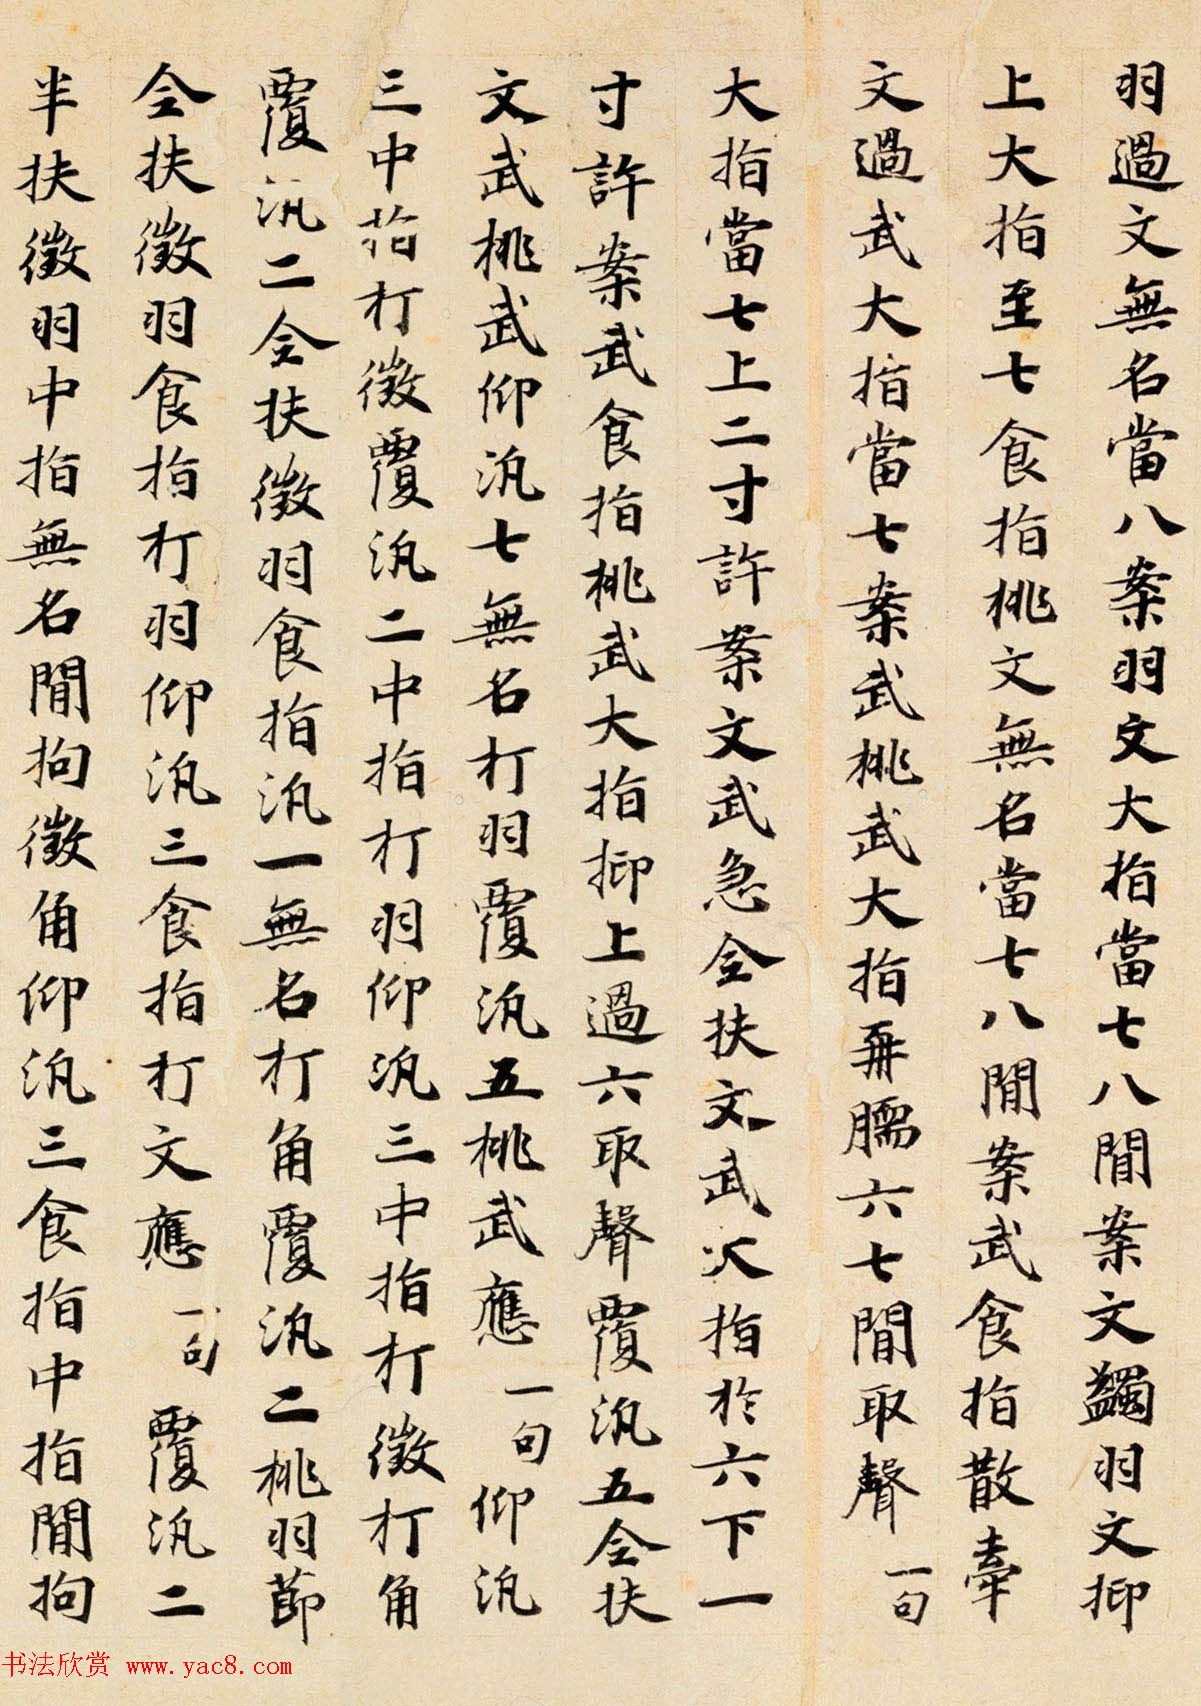 羽過文無名當八案羽文大指當七八間案文蠲羽文抑
上大指至七食指挑文無名當七八間案武食指散牽
文過武大指當七案武挑武大指再臑六七間取聲一句
大指當七上二寸許案文武急全扶文武大指於六下一
寸許案武食指挑武大指抑上過六取聲覆汎五全扶
文武挑武仰汎七無名打羽覆汎五挑武應一句仰汎
三中指打徵覆汎二中指打羽仰汎三中指打徵打角
覆汎二全扶徵羽食指汎一無名打角覆汎二挑羽節
全扶徵羽食指打羽仰汎三食指打文應一句覆汎二
半扶徵羽中指無名間拘徵角仰汎三食指中指間拘
书法欣赏 www.yac8.com